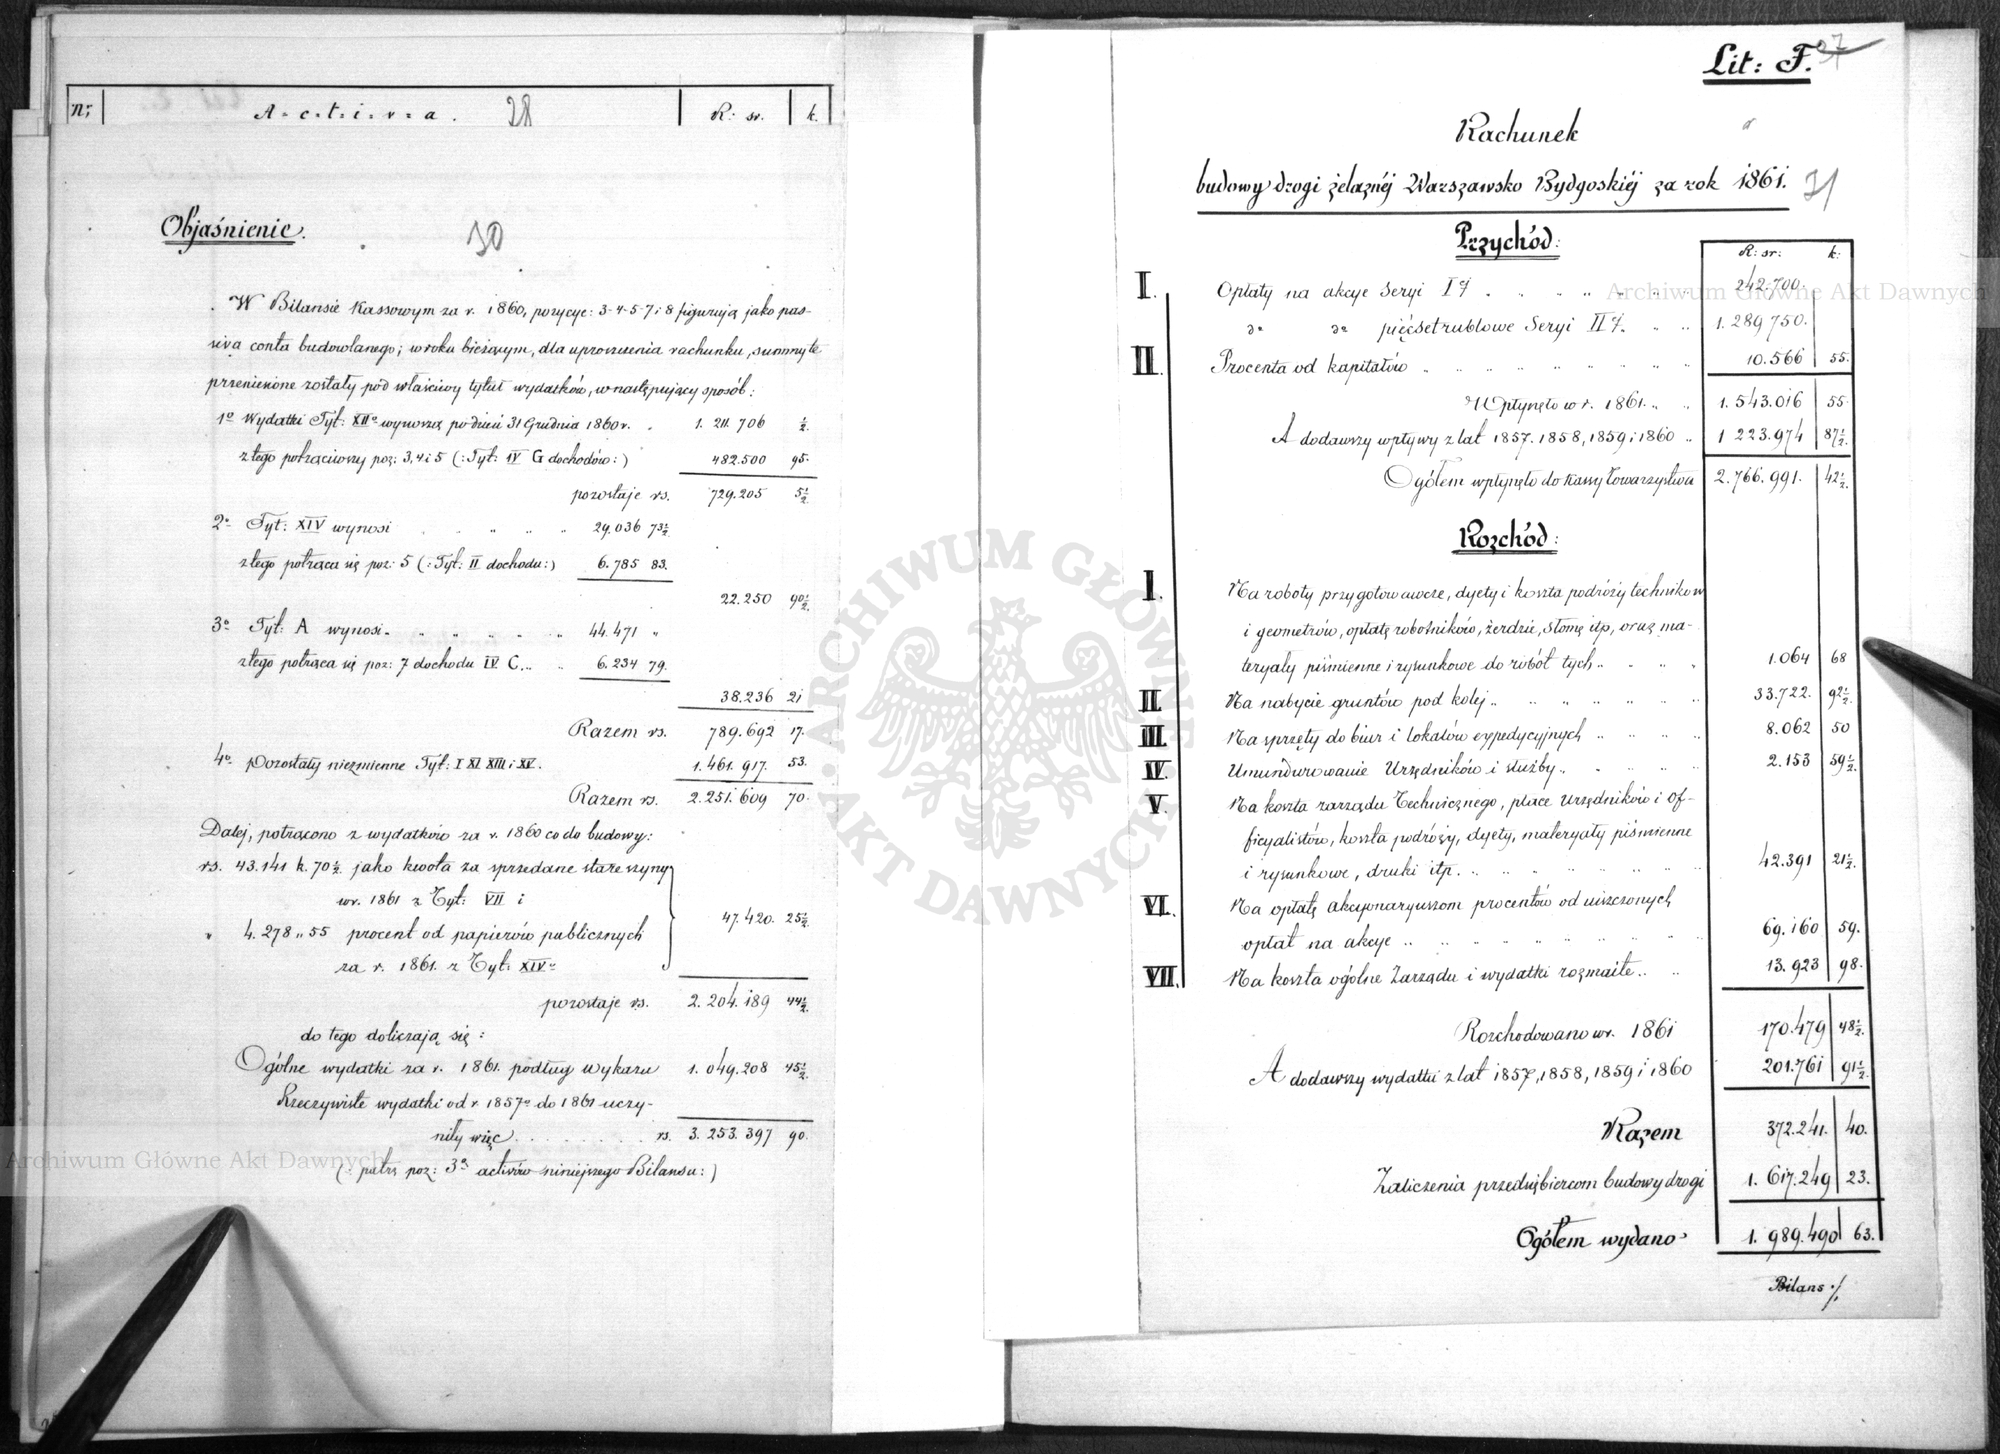 Nr Activa. 28 R: sr. k.
Objaśnienie. 30
W Bilansie Kassowym za r. 1860, pozycye: 3-4-5-7 i 8 figurują jako pas-
siva conta budowlanego; w roku bieżącym, dla uproszczenia rachunku, summy te
przeniesione zostały pod właściwy tytuł wydatków, w następujący sposób:
1o Wydatki Tyt: XIIo wynoszą po dzień 31 Grudnia 1860 r. . 1. 211. 706 ½.
z tego potrąciwszy poz: 3, 4 i 5 (: Tyt: IV G dochodów:) 482.500 95.
pozostaje rs. 729.205 5½
2o Tyt: XIV wynosi . " " " 29.036 73½
z tego potrąca się poz: 5 (: Tyt: II dochodu:) 6.785 83.
22.250 90½.
3o Tyt: A wynosi " " " " " 44.471 "
z tego potrąca się poz: 7 dochodu IV. C. " " 6.234 79.
38.236 21
Razem rs. 789.692 17.
4o pozostały niezmienne Tyt: I XI XIII i XV. 1.461.917. 53.
Razem rs. 2.251.609 70.
Dalej, potrącono z wydatków za r. 1860 co do budowy:
rs. 43.141 k. 70½ jako kwota za sprzedane stare szyny
w r. 1861 z Tyt: VII i
47.420. 25½.
" 4.278 " 55 procent od papierów publicznych
za r. 1861. z Tyt: XIVo
pozostaje rs. 2.204.189 44½.
do tego doliczają się:
Ogólne wydatki za r. 1861. podług wykazu 1.049.208 45½.
Rzeczywiste wydatki od r. 1857o do 1861 uczy-
niły więc . . . . . . . rs. 3.253.397 90.
(: patrz poz: 3a activów niniejszego Bilansu:)
Lit: F. 37
Rachunek
budowy drogi żelaznéj Warszawsko Bydgoskiéj za rok 1861. 31
Przychód:
R: sr: k:
I. Opłaty na akcye Seryi I . . " " " " 242.700.
do do pięćsetrublowe Seryi II . " " 1.289750.
II. Procenta od kapitałów " " " " " " " 10.566 55.
Wpłynęło w r. 1861. " " 1.543.016 55.
A dodawszy wpływy z lat 1857. 1858, 1859 i 1860 " 1 223.974 87½.
Ogółem wpłynęło do Kassy Towarzystwa 2.766.991. 42½.
Rozchód:
I. Na roboty przygotowawcze, dyety i koszta podróży techników
i geometrów, opłatę robotników, żerdzie, słomę itp, oraz ma-
teryały piśmienne i rysunkowe do robót tych " " " " 1.064 68
II. Na nabycie gruntów pod kolej " " " " " " 33.722. 92½.
III. Na sprzęty do biur i lokalów expedycyjnych " " " " 8.062 50
IV. Umundurowanie Urzędników i służby " " " " 2.153 59½.
V. Na koszta zarządu Technicznego, płace Urzędników i Of-
ficyalistów, koszta podróży, dyety, materyały piśmienne
i rysunkowe, druki itp. " " " " " " 42.391 21½.
VI. Na opłatę akcyonaryuszom procentów od uiszczonych
opłat na akcye " " " " " " " " 69.160 59.
VII. Na koszta ogólne Zarządu i wydatki rozmaite " " 13.923 98.
Rozchodowano w r. 1861 170.479 48½.
A dodawszy wydatki z lat 1857, 1858, 1859 i 1860 201.761 91½.
Razem 372.241. 40.
Zaliczenia przedsiębiercom budowy drogi 1.617.249 23.
Ogółem wydano 1.989.490 63.
Bilans ./.
Archiwum Główne Akt Dawnych
Archiwum Główne Akt Dawnych
ARCHIWUM GŁÓWNE
AKT DAWNYCH